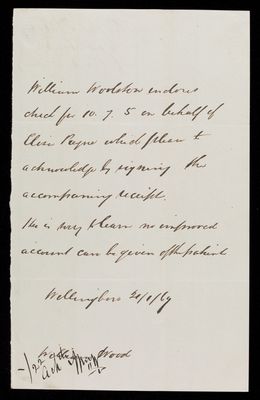 William Woolston encloses
check for 10. 7. 5 on behalf of
Eliza Payne which please to
acknowledge by signing the
accompanying receipt.
He is sorry to learn no improved
account can be given of the patient
Wellingboro 20/1/69
Wood